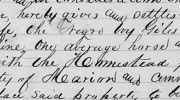 hereby gives and settles
fe, the Negro boy Giles
ine, One average horse a
with the Homestead
ty of Marion and
ace said property to be